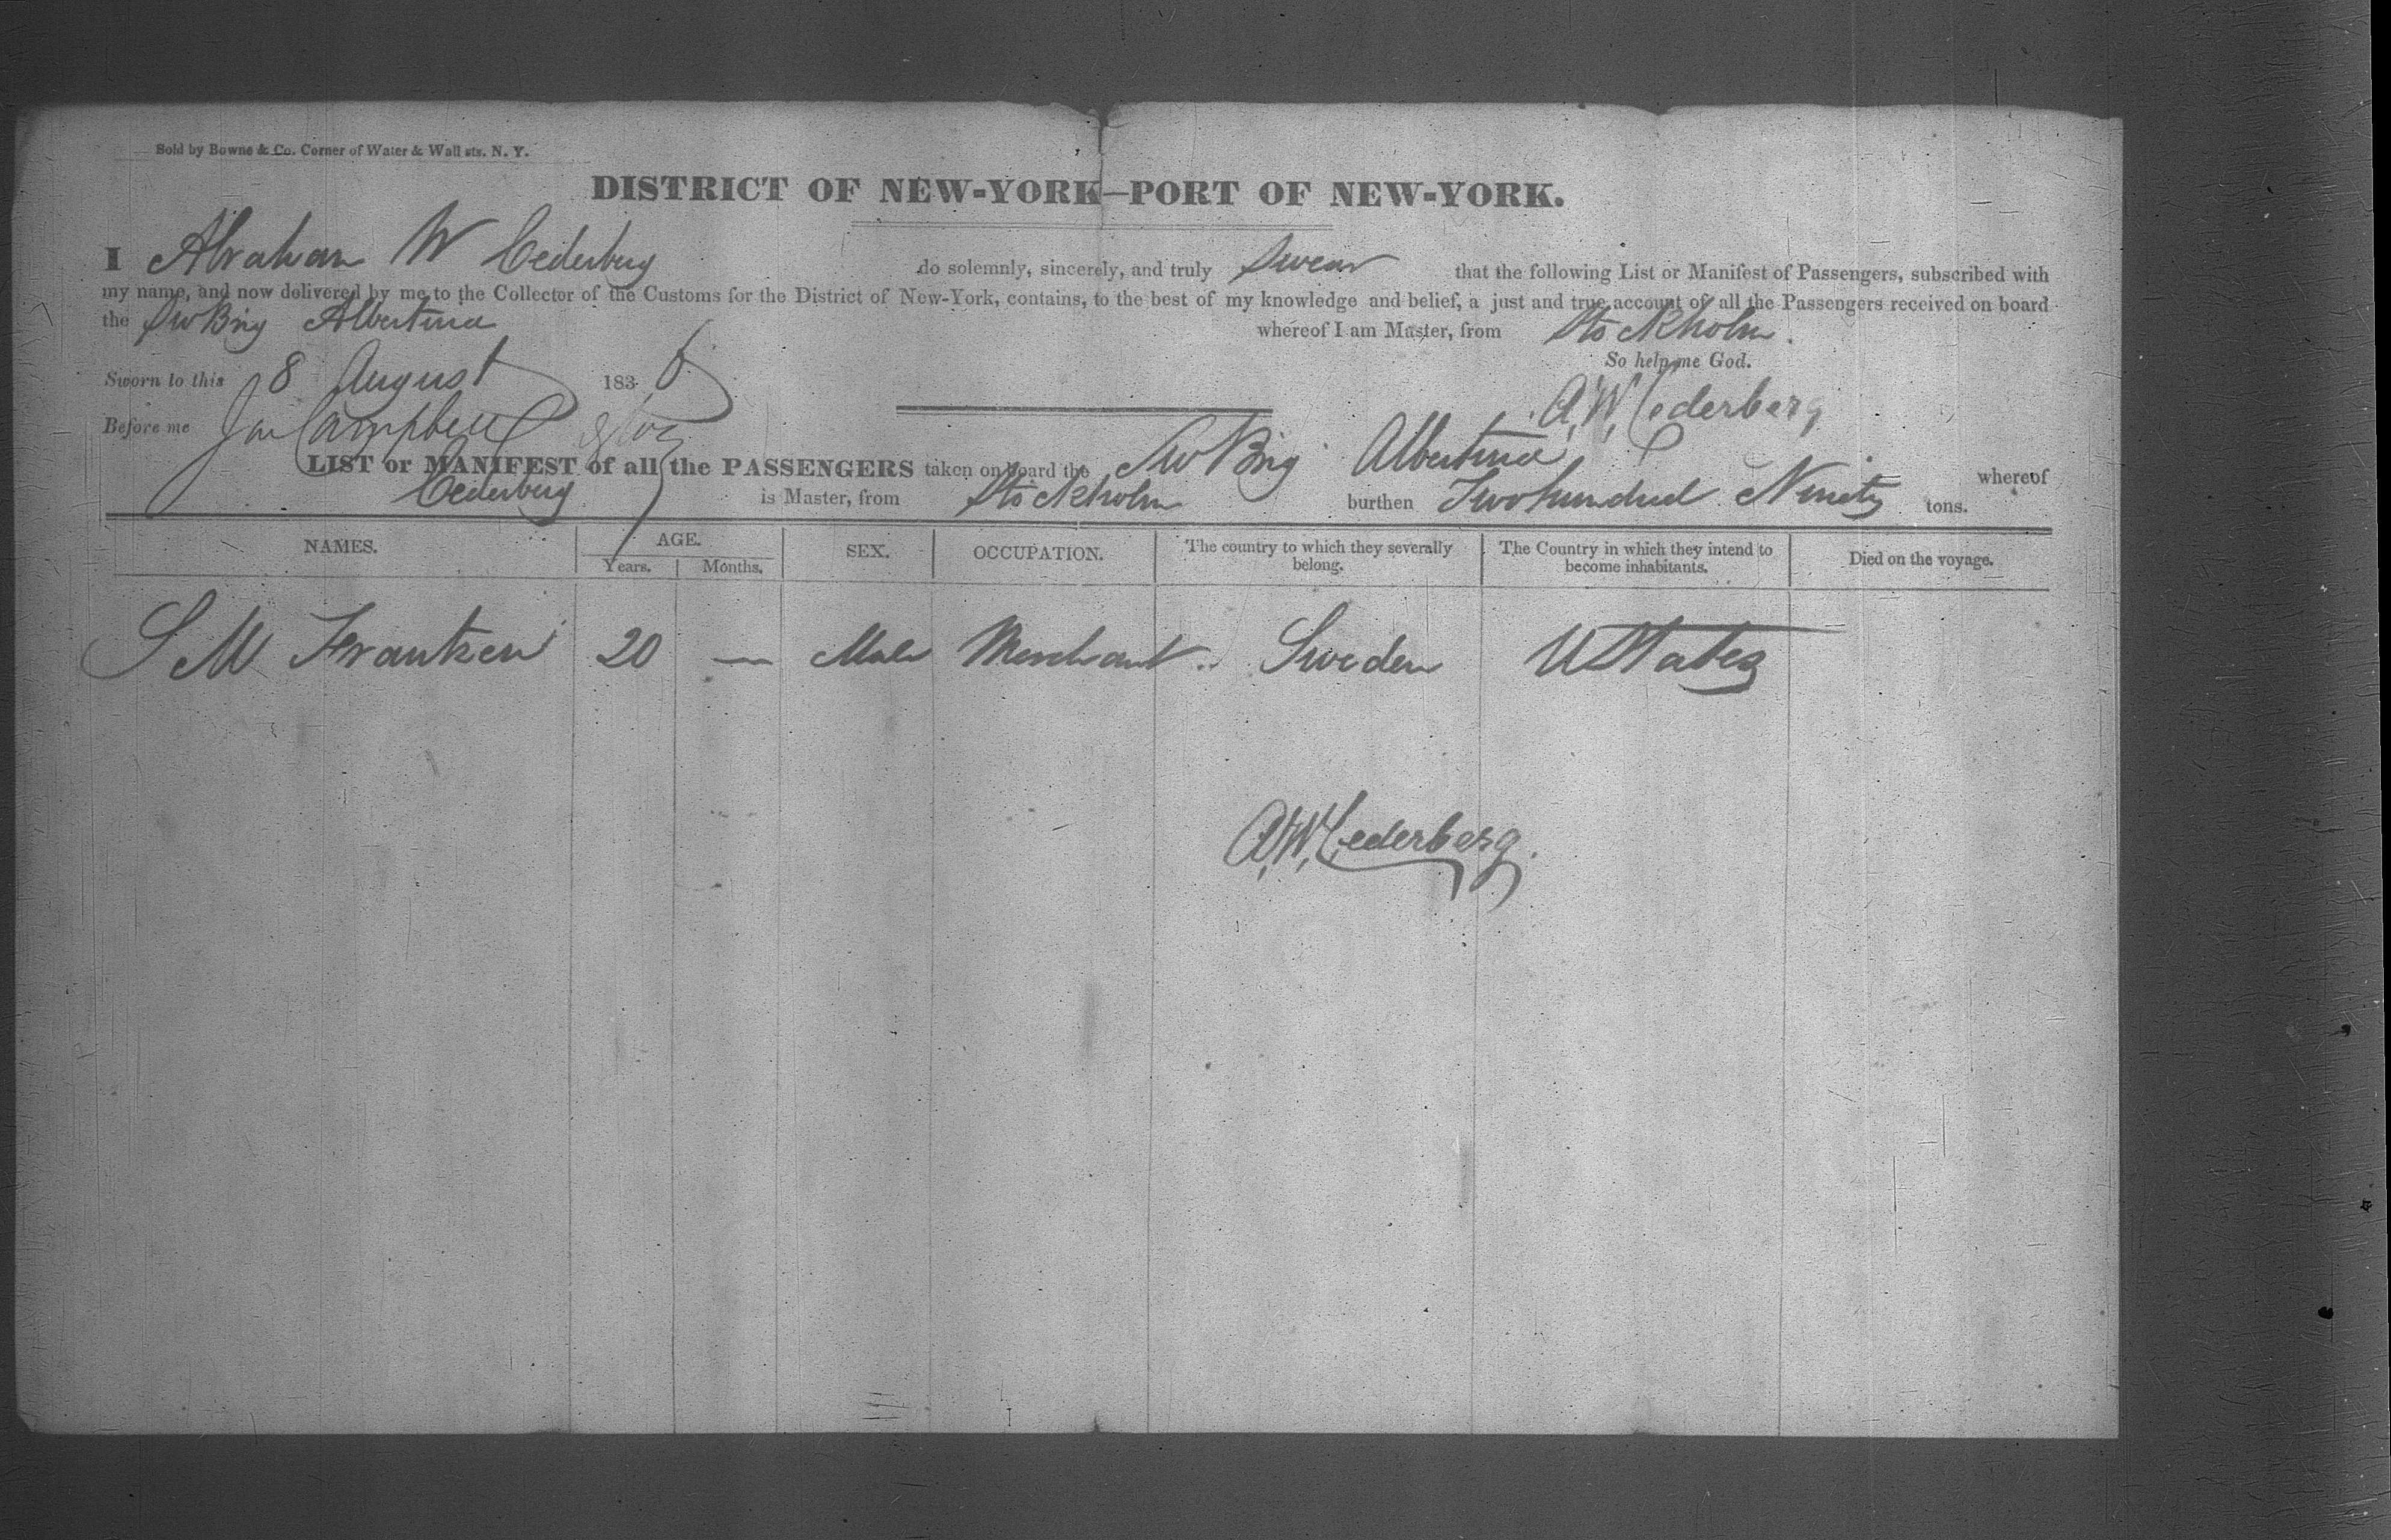 Sold by Bowne & Co. Corner of Water & Wall sts. N. Y.
DISTRICT OF NEW-YORK—PORT OF NEW-YORK.
I Abraham W Cederberg do solemnly, sincerely, and truly Swear that the following List or Manifest of Passengers, subscribed with
my name, and now delivered by me to the Collector of the Customs for the District of New-York, contains, to the best of my knowledge and belief, a just and true account of all the Passengers received on board
the Sw Brig Albertina whereof I am Master, from Stockholm.
So help me God.
Sworn to this 8 August 1836
A. W. Cederberg
Before me Campbell
LIST or MANIFEST of all the PASSENGERS taken on board the Sw Brig Albertina whereof
Cederberg is Master, from Stockholm burthen Two hundred Ninety tons.
NAMES. AGE. SEX. OCCUPATION. The country to which they severally belong. The Country in which they intend to become inhabitants. Died on the voyage.
Years. Months.
S M Frantzen 20 — Male Merchant Sweden U States
A. W. Cederberg.